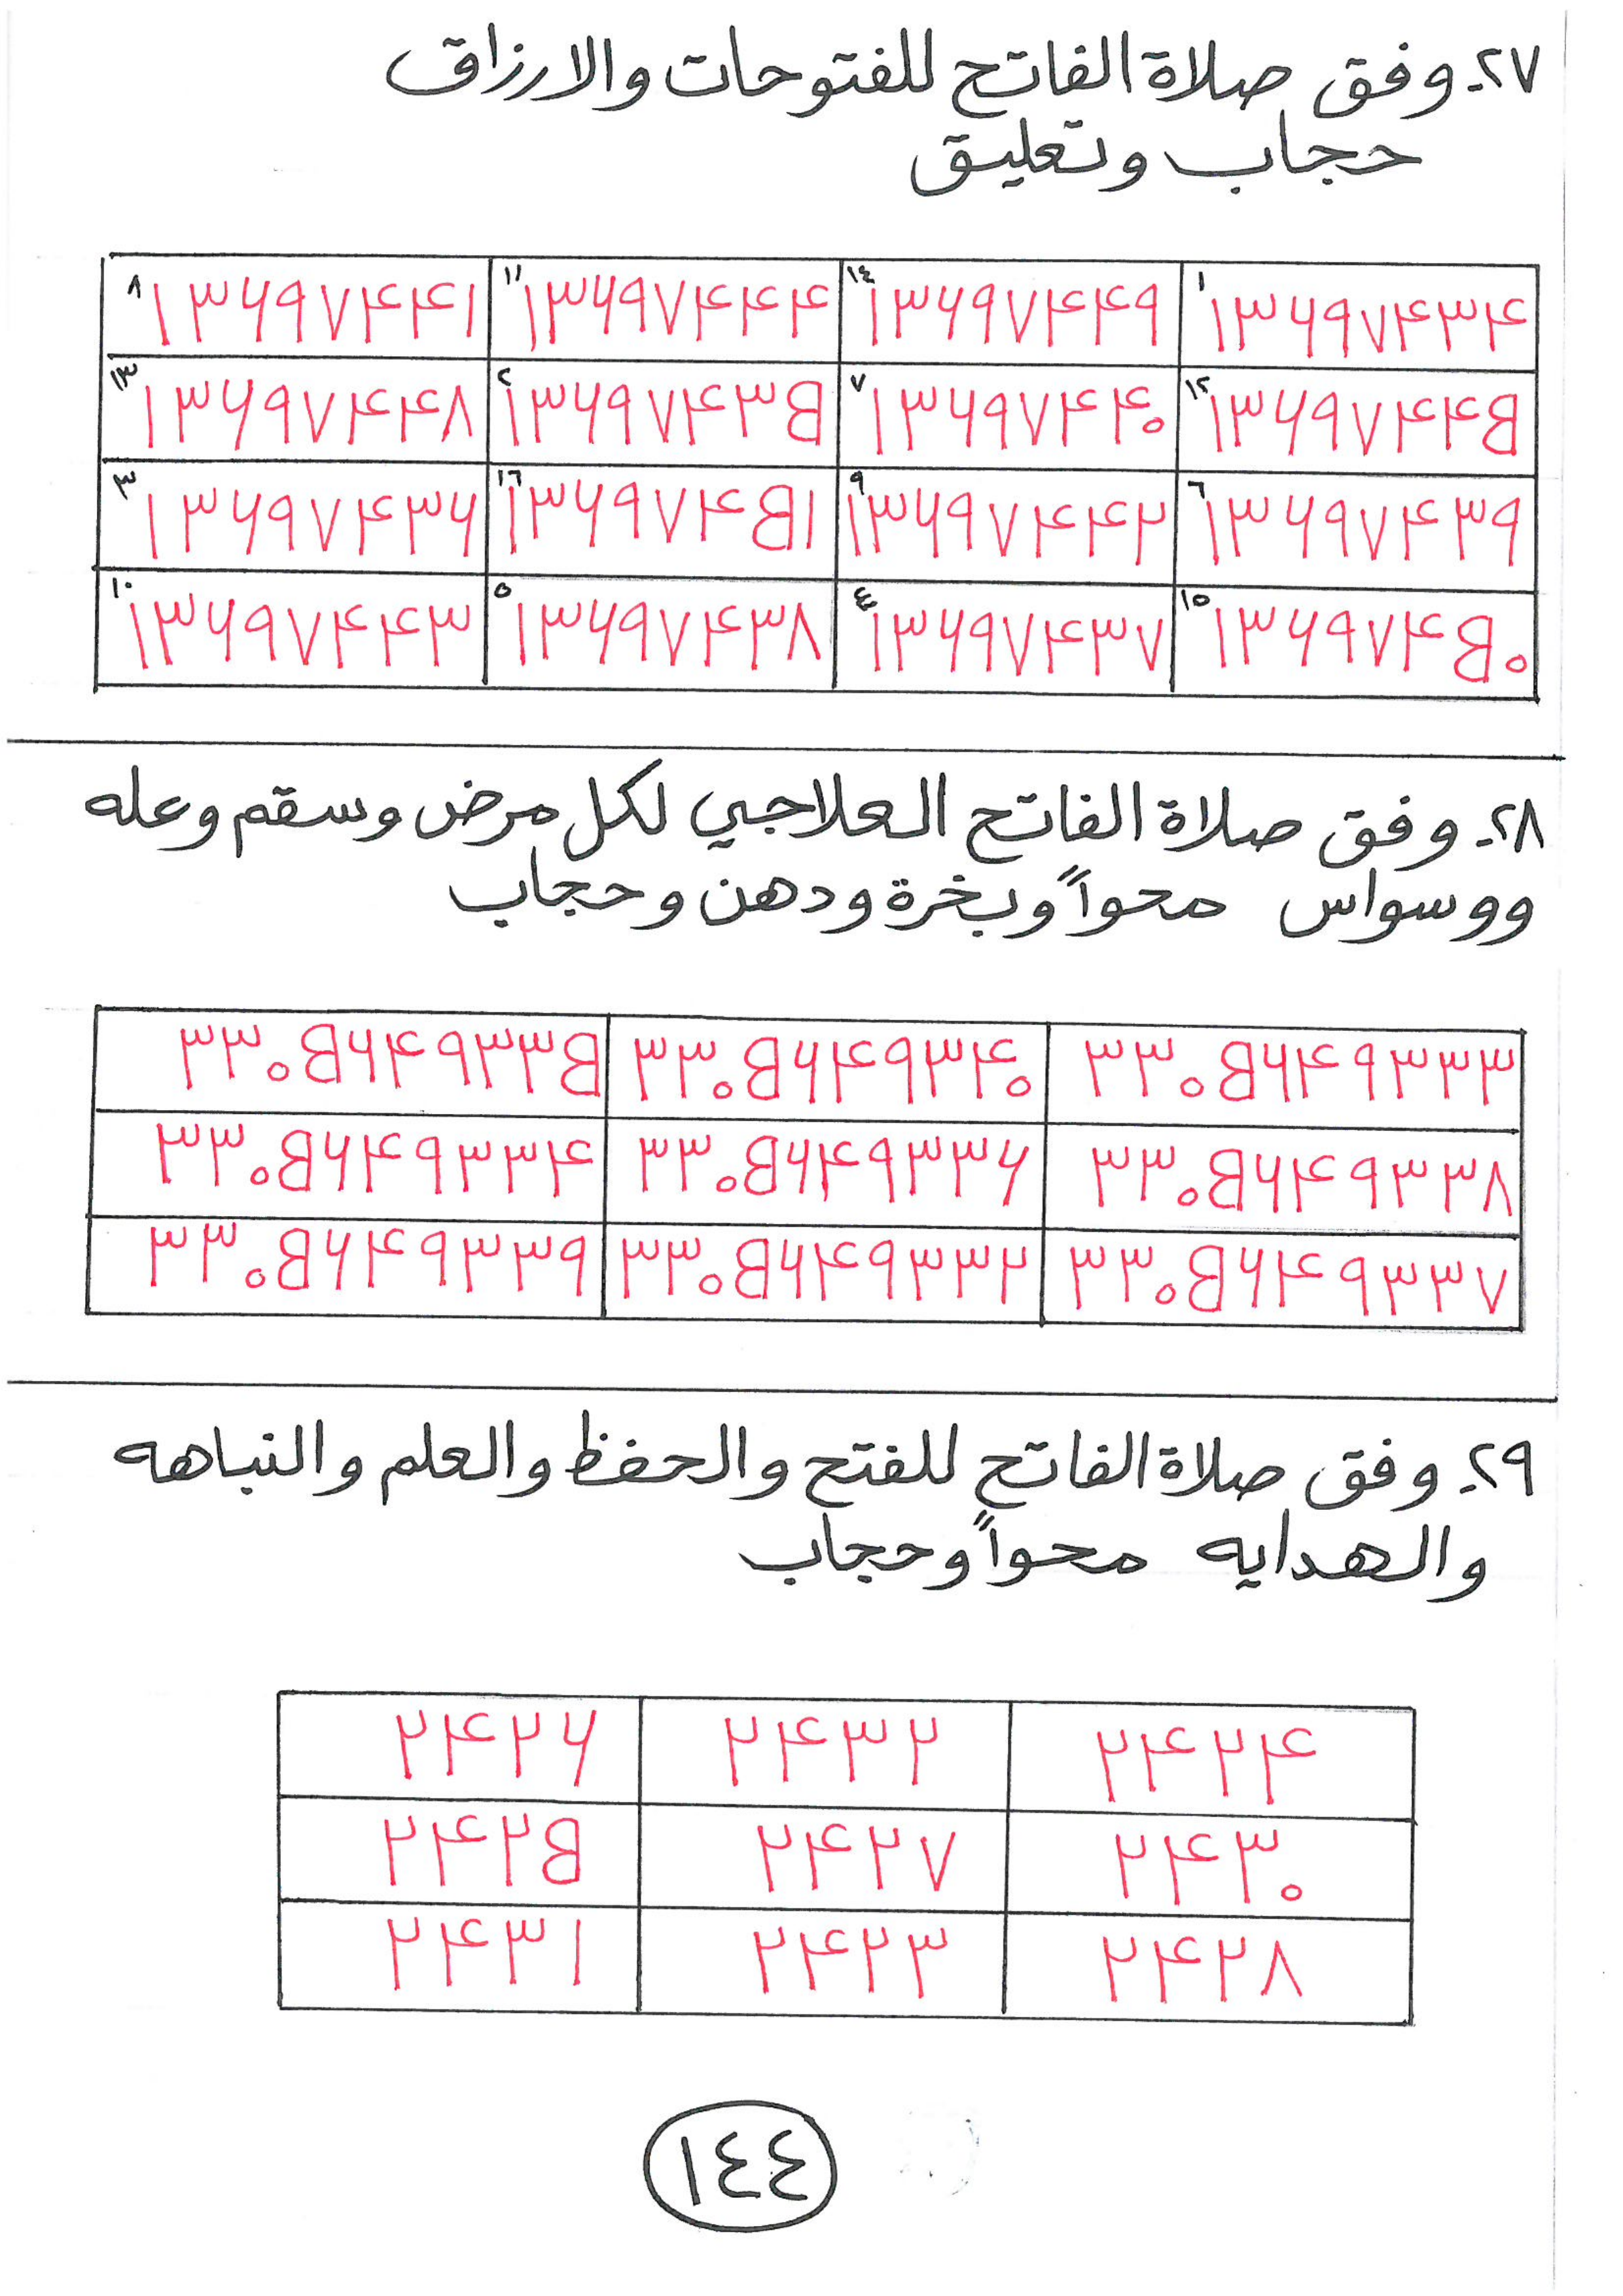 ٢٧ـ وفق صلاة الفاتح للفتوحات والارزاق
حجاب وتعليق
١ ١٣٦٩٧٤٣٤ ١٤ ١٣٦٩٧٤٤٩ ١١ ١٣٦٩٧٤٤٤ ٨ ١٣٦٩٧٤٤١
١٢ ١٣٦٩٧٤٤٥ ٧ ١٣٦٩٧٤٤٠ ٢ ١٣٦٩٧٤٣٥ ١٣ ١٣٦٩٧٤٤٨
٦ ١٣٦٩٧٤٣٩ ٩ ١٣٦٩٧٤٤٢ ١٦ ١٣٦٩٧٤٥١ ٣ ١٣٦٩٧٤٣٦
١٥ ١٣٦٩٧٤٥٠ ٤ ١٣٦٩٧٤٣٧ ٥ ١٣٦٩٧٤٣٨ ١٠ ١٣٦٩٧٤٤٣
٢٨ـ وفق صلاة الفاتح العلاجي لكل مرض وسقم وعله
ووسواس محواً وبخرة ودهن وحجاب
٣٣٠٥٦٤٩٣٣٣ ٣٣٠٥٦٤٩٣٤٠ ٣٣٠٥٦٤٩٣٣٥
٣٣٠٥٦٤٩٣٣٨ ٣٣٠٥٦٤٩٣٣٦ ٣٣٠٥٦٤٩٣٣٤
٣٣٠٥٦٤٩٣٣٧ ٣٣٠٥٦٤٩٣٣٢ ٣٣٠٥٦٤٩٣٣٩
٢٩ـ وفق صلاة الفاتح للفتح والحفظ والعلم والنباهه
والهدايه محواً وحجاب
٢٤٢٤ ٢٤٣٢ ٢٤٢٦
٢٤٣٠ ٢٤٢٧ ٢٤٢٥
٢٤٢٨ ٢٤٢٣ ٢٤٣١
١٤٤